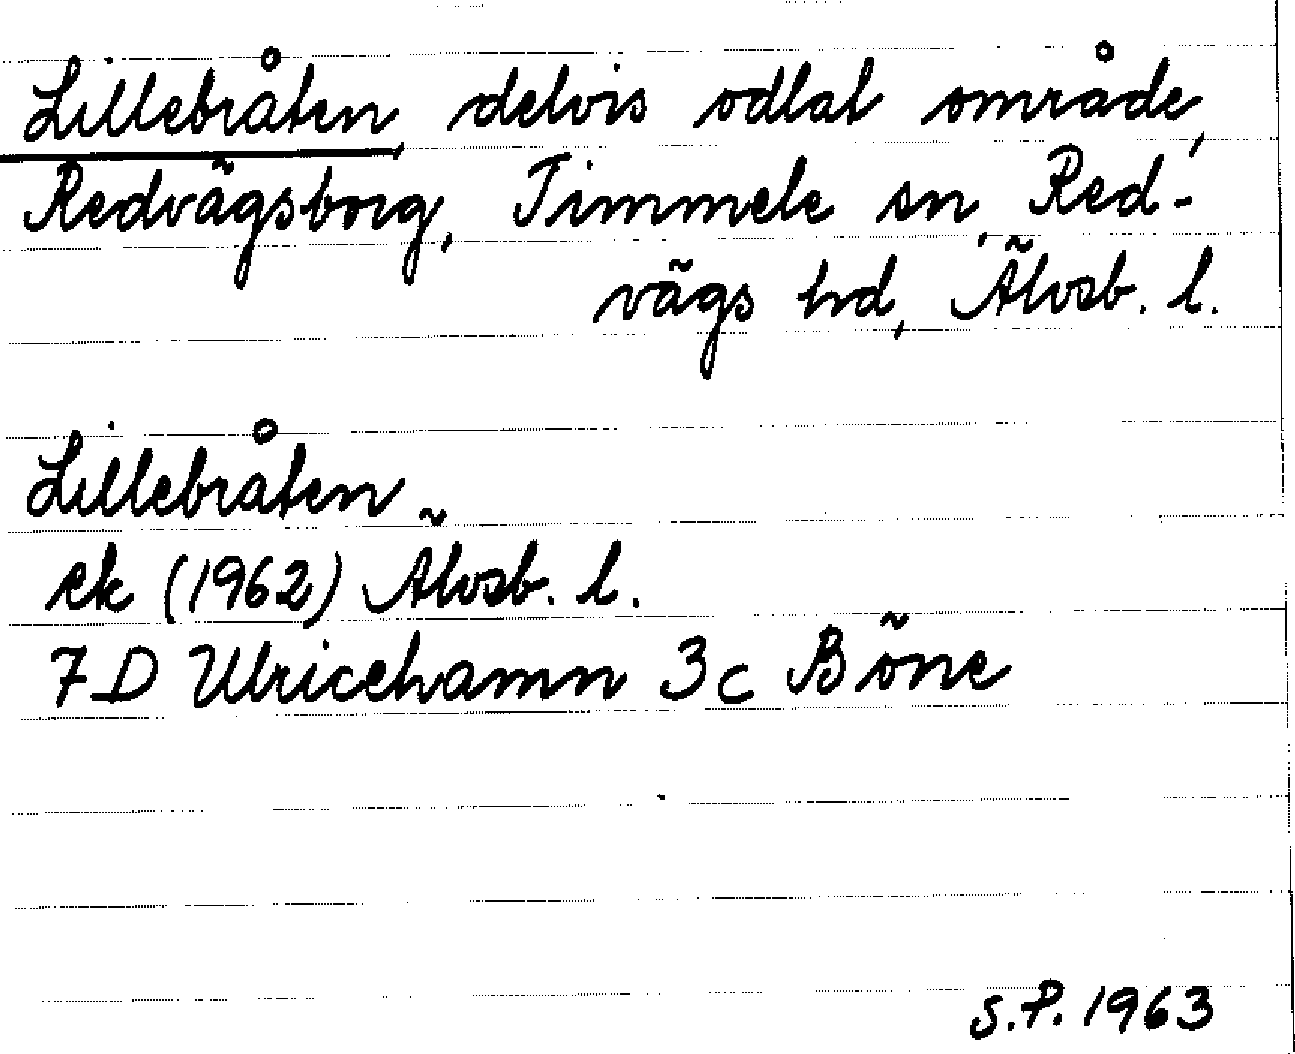 Lillebråten, delvis odlat område,
Redvägsborg, Timmele sn, Red-
vägs hd, Älvsb. l.
Lillebråten
ek (1962) Älvsb. l.
7D Ulricehamn 3c Böne
S.P. 1963